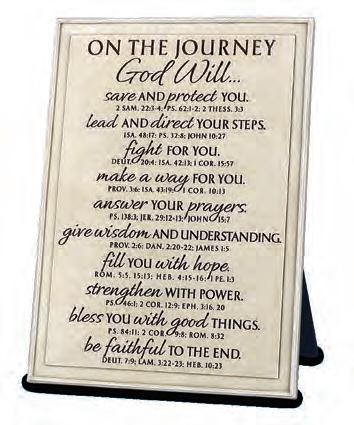 ON THE JOURNEY
God Will...
save AND protect YOU.
2 SAM. 22:3-4; PS. 62:1-2; 2 THESS. 3:3
lead AND direct YOUR STEPS.
ISA. 48:17; PS. 32:8; JOHN 10:27
fight FOR YOU.
DEUT. 20:4; ISA. 42:13; 1 COR. 15:57
make a way FOR YOU.
PROV. 3:6; ISA. 43:19; 1 COR. 10:13
answer YOUR prayers.
PS. 138:3; JER. 29:12-13; JOHN 15:7
give wisdom AND UNDERSTANDING.
PROV. 2:6; DAN. 2:20-22; JAMES 1:5
fill YOU with hope.
ROM. 5:5, 15:13; HEB. 4:15-16; 1 PE. 1:3
strengthen WITH POWER.
PS. 66:1; 2 COR. 12:9; EPH. 3:16, 20
bless YOU with good THINGS.
PS. 84:11; 2 COR. 9:8; ROM. 8:32
be faithful TO THE END.
DEUT. 7:9; LAM. 3:22-23; HEB. 10:23